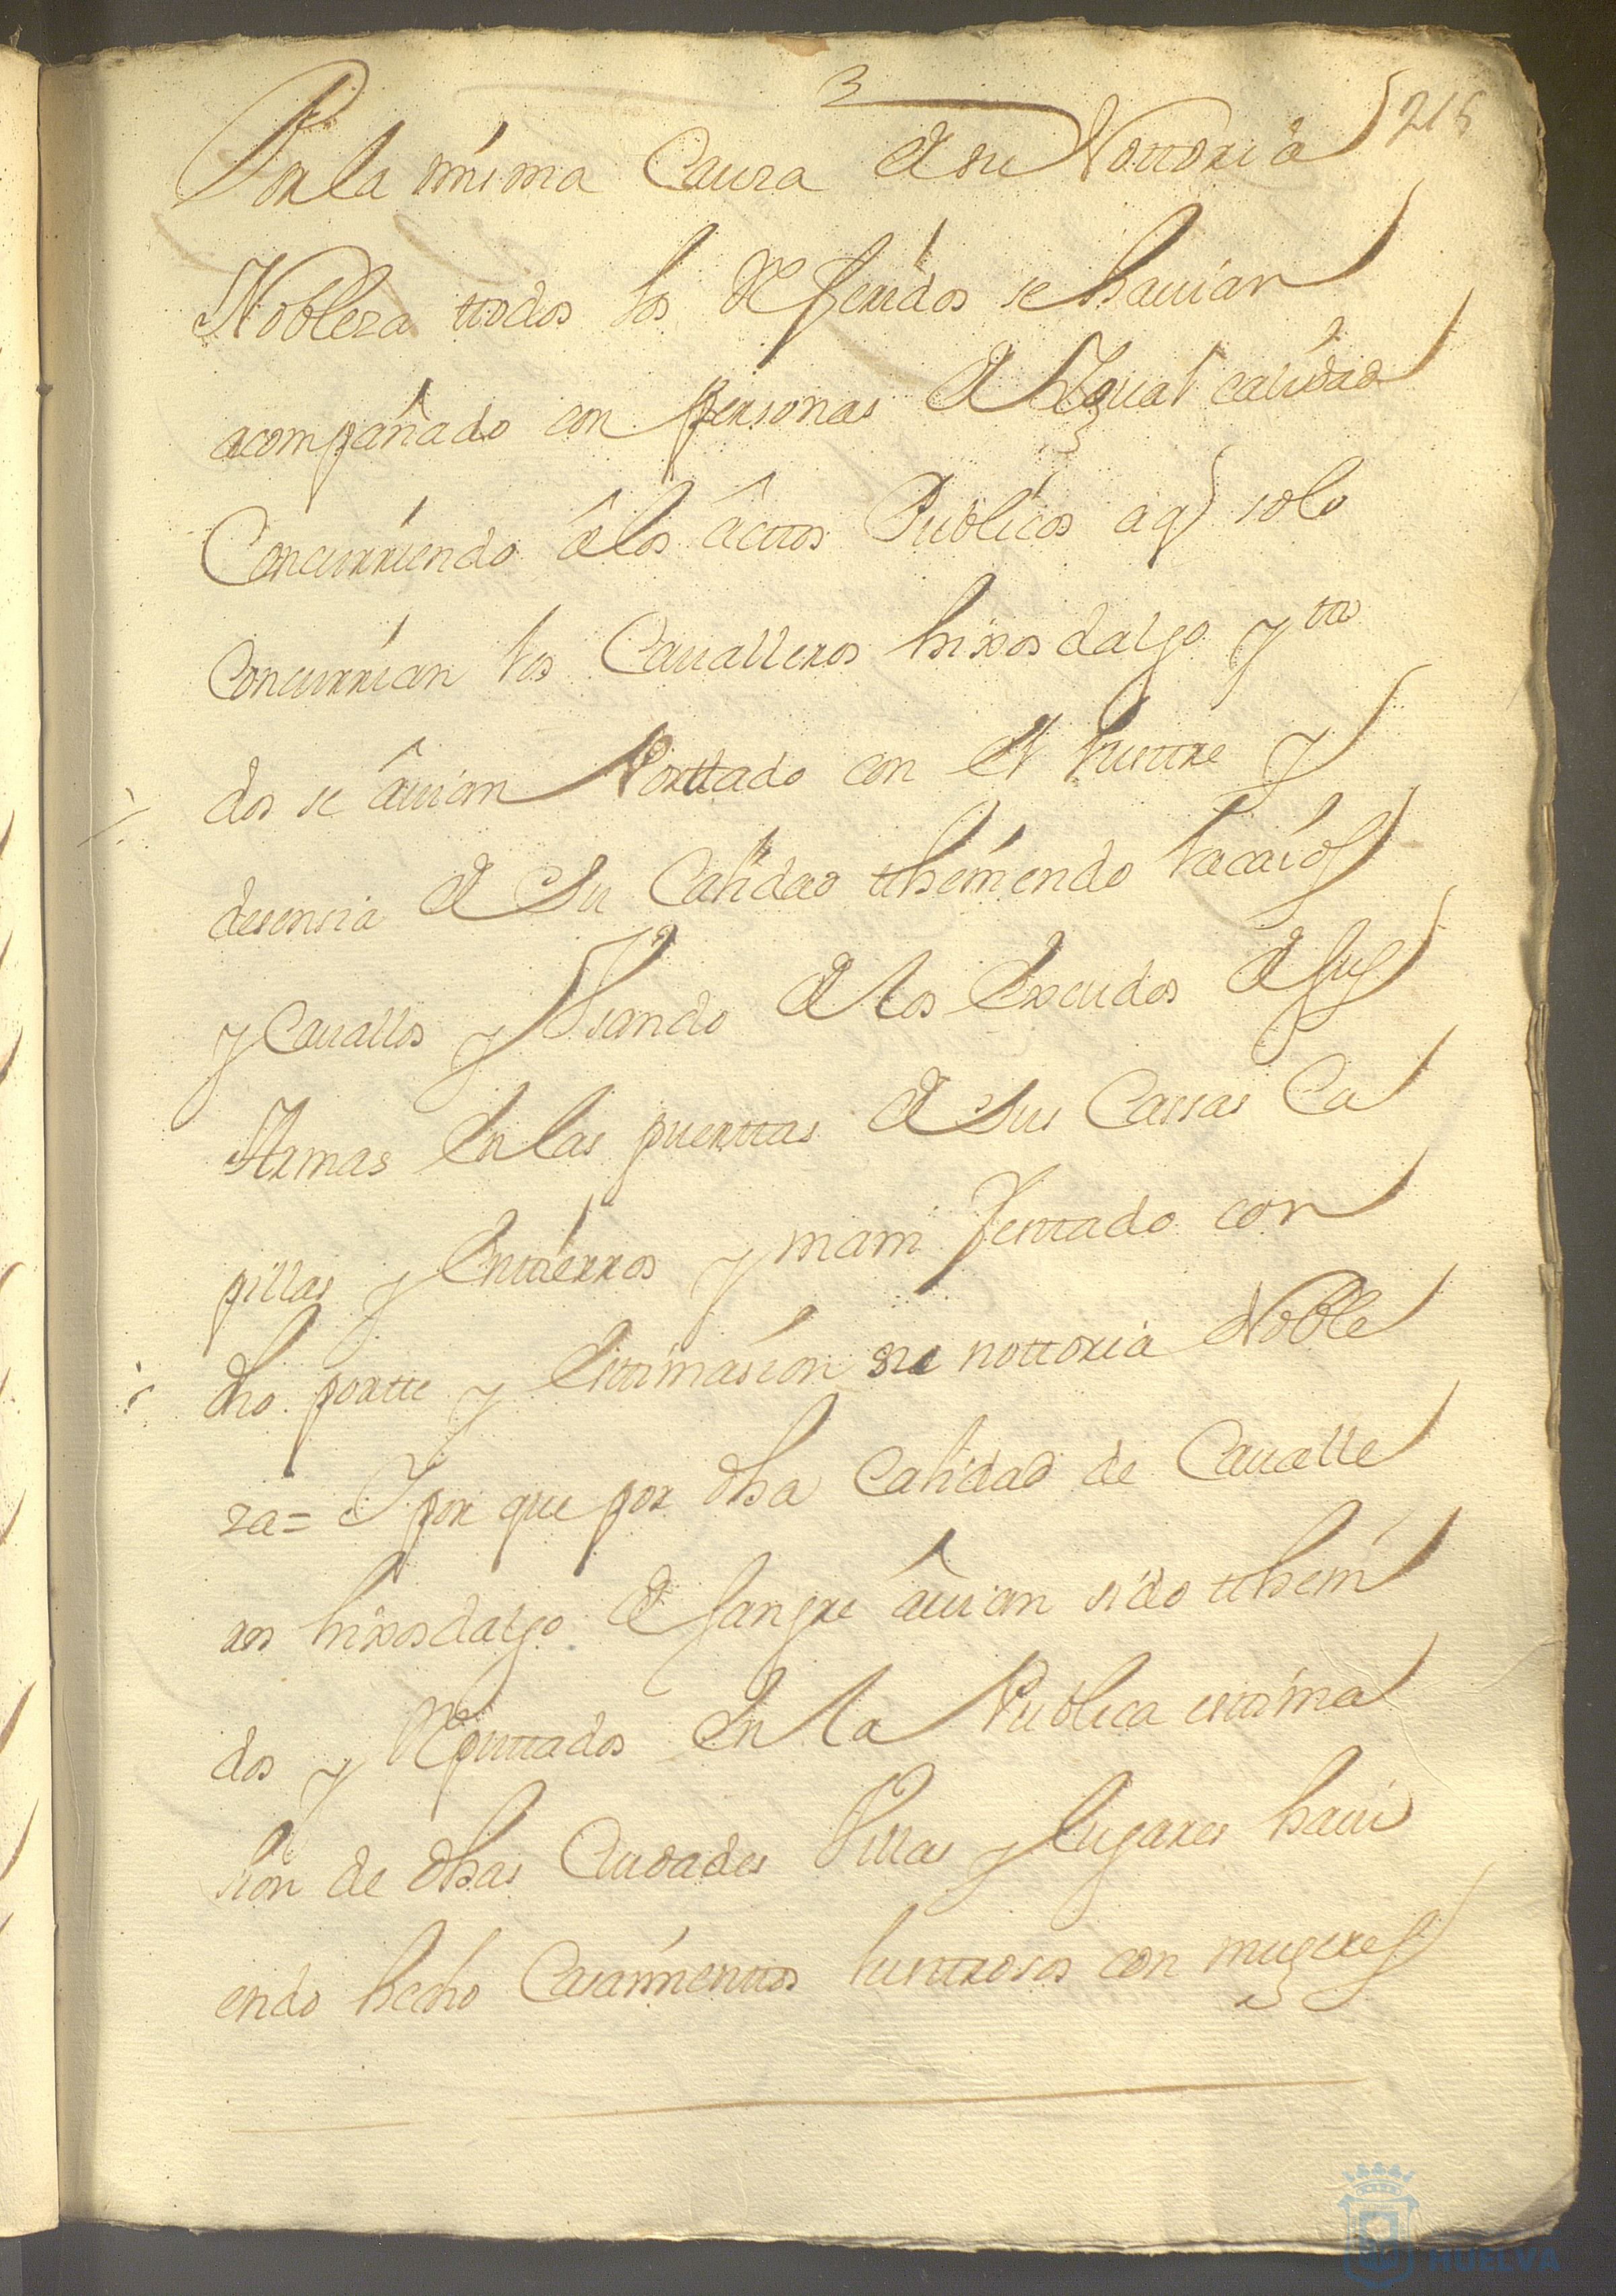 3
215
Por la misma Caussa de su Nottoria
Nobleza ttodos los Referidos se hauian
acompañado con personas de Ygual calidad
Concurriendo â los âcttos Publicos a q solo
Concurrian los Caualleros hixosdalgo y tto
dos se âuian Porttado con el lusttre y
desensia de su Calidad ttheniendo lacaios
y Cauallos y Vsando de los Escudos de sus
Armas en las puerttas de sus Cassas Ca
pillas y Enttierros y manifesttado con
dho portte y Esttimasion su nottoria Noble
za = Y por que por dha Calidad de Caualle
ros hixosdalgo de sangre âuian sido ttheni
dos y Reputtados en la Publica esttima
sion de dhas Ciudades Villas y lugares haui
endo hecho Casamienttos lusttrosos con mugeres
HUELVA